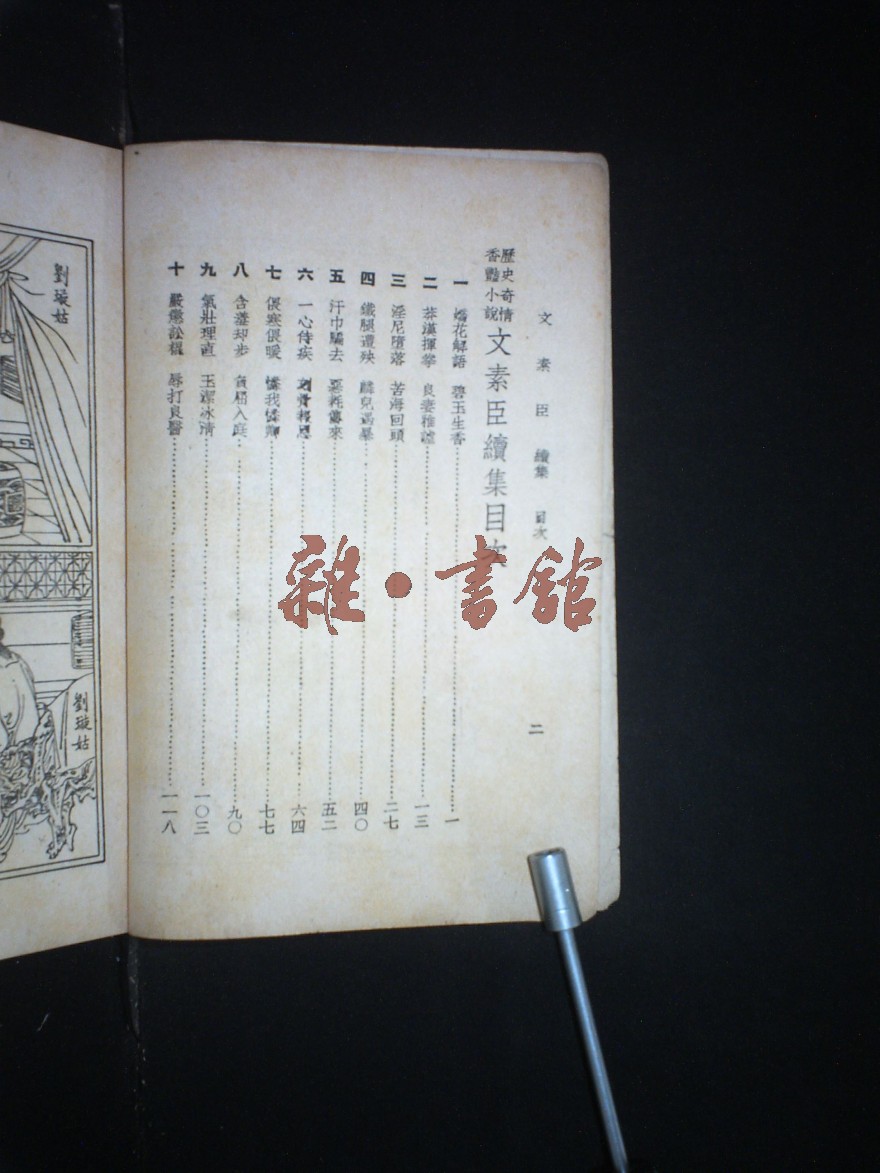 文素臣 續集 目次
二
歷史奇情
香艷小說
文素臣續集目次
一 嬌花解語 碧玉生香 一
二 莽漢揮拳 良妻稚謔 一三
三 淫尼墮落 苦海回頭 二七
四 鐵腿遭殃 麟兒遇暴 四〇
五 汗巾騙去 惡耗傳來 五二
六 一心侍疾 刻骨報恩 六四
七 偎寒偎暖 憐我憐卿 七七
八 含羞却步 負屈入庭 九〇
九 氣壯理直 玉潔冰清 一〇三
十 嚴懲訟棍 辱打良醫 一一八
劉璇姑
劉璇姑
雜·書館